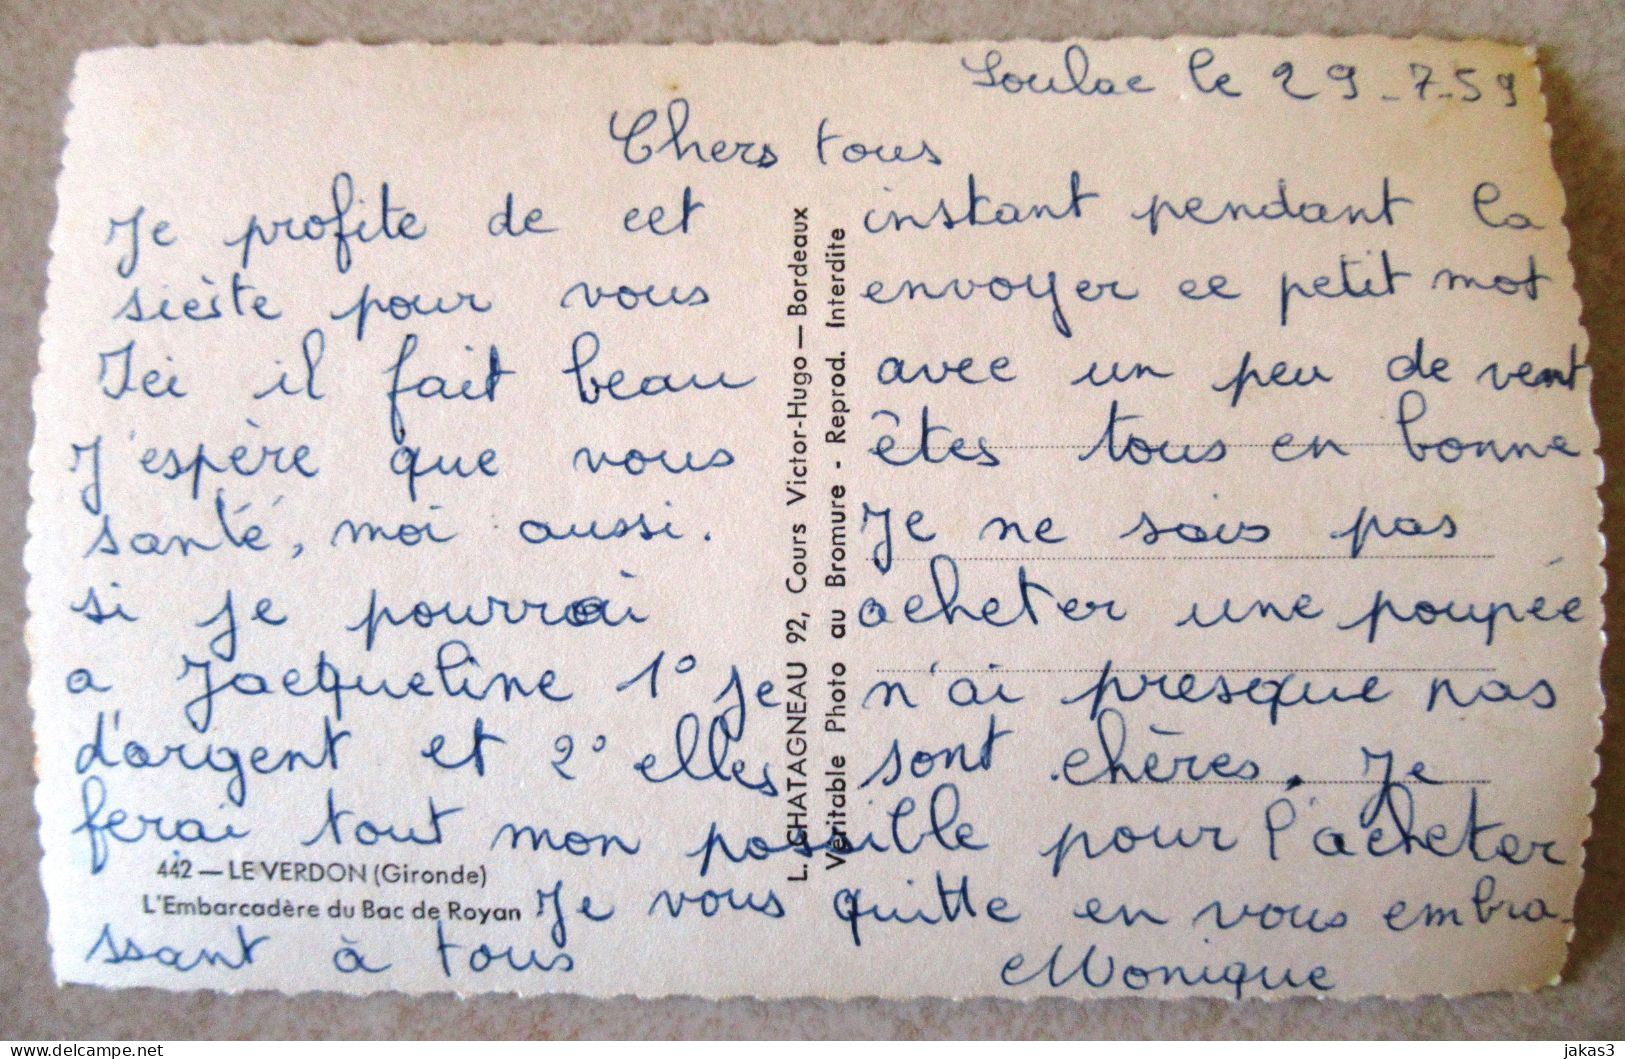 Soulac le 29-7-59
Chers tous
Je profite de cet instant pendant la
sièste pour vous envoyer ce petit mot
Ici il fait beau avec un peu de vent
J'espère que vous êtes tous en bonne
santé, moi aussi. Je ne sais pas
si je pourrai acheter une poupée
a Jacqueline 1° je n'ai presque pas
d'argent et 2° elles sont chères. Je
ferai tout mon possible pour l'acheter
Je vous quitte en vous embra-
ssant à tous
Monique
442 — LE VERDON (Gironde)
L'Embarcadère du Bac de Royan
L. CHATAGNEAU 92, Cours Victor-Hugo — Bordeaux
Véritable Photo au Bromure - Reprod. Interdite
delcampe.net
jakas3